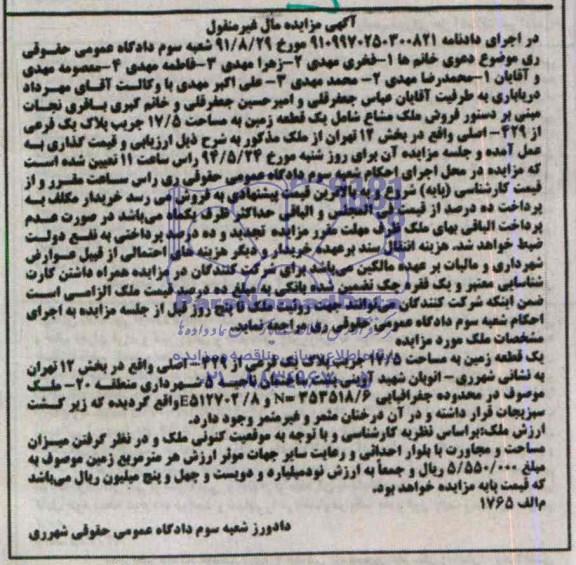 آگهی مزایده مال غیرمنقول
در اجرای دادنامه ۹۱۰۹۹۷۰۲۵۰۳۰۰۸۲۱ مورخ ۹۱/۸/۲۹ شعبه سوم دادگاه عمومی حقوقی
ری موضوع دعوی خانم ها ۱-فخری مهدی ۲-زهرا مهدی ۳-فاطمه مهدی ۴-معصومه مهدی
و آقایان ۱-محمدرضا مهدی ۲- محمد مهدی ۳- علی اکبر مهدی با وکالت آقای مهرداد
دریاباری به طرفیت آقایان عباس جعفرقلی و امیرحسین جعفرقلی و خانم گبری باقری نجات
مبنی بر دستور فروش ملک مشاع شامل یک قطعه زمین به مساحت ۱۷/۵ جریب پلاک یک فرعی
از ۴۲۹- اصلی واقع در بخش ۱۲ تهران از ملک مذکور به شرح ذیل ارزیابی و قیمت گذاری به
عمل آمده و جلسه مزایده آن برای روز شنبه مورخ ۹۴/۵/۲۴ راس ساعت ۱۱ تعیین شده است
که مزایده در محل اجرای احکام شعبه سوم دادگاه عمومی حقوقی ری راس ساعت مقرر و از
قیمت کارشناسی (پایه) شروع و به بالاترین قیمت پیشنهادی به فروش می رسد خریدار مکلف به
پرداخت ده درصد از قیمت فی المجلس و الباقی حداکثر ظرف یکماه می‌باشد در صورت عدم
پرداخت الباقی بهای ملک ظرف مهلت مقرر مزایده تجدید و ده درصد پرداختی به نفع دولت
ضبط خواهد شد. هزینه انتقال سند برعهده خریدار و دیگر هزینه های احتمالی از قبیل عوارض
شهرداری و مالیات بر عهده مالکین می‌باشد برای شرکت کنندگان در مزایده همراه داشتن کارت
شناسایی معتبر و یک فقره چک تضمین شده بانکی به مبلغ ده درصد قیمت ملک الزامی است
ضمن اینکه شرکت کنندگان می‌توانند جهت رویت ملک تا پنج روز قبل از جلسه مزایده به اجرای
احکام شعبه سوم دادگاه عمومی حقوقی ری مراجعه نماید.
مشخصات ملک مورد مزایده
یک قطعه زمین به مساحت ۱۷/۵ جریب پلاک یک فرعی از ۴۲۹- اصلی واقع در بخش ۱۲ تهران
به نشانی شهرری- اتوبان شهید آوینی ناحیه ۵ شهرداری منطقه ۲۰- ملک
موصوف در محدوده جغرافیایی N= ۳۵۳۵۱۸/۶ و E۵۱۲۷۰۲/۸ واقع گردیده که زیر کشت
سبزیجات قرار داشته و در آن درختان مثمر و غیرمثمر وجود دارد.
ارزش ملک:براساس نظریه کارشناسی و با توجه به موقعیت کنونی ملک و در نظر گرفتن میزان
مساحت و مجاورت با بلوار احداثی و رعایت سایر جهات موثر ارزش هر مترمربع زمین موصوف به
مبلغ ۵/۵۵۰/۰۰۰ ریال و جمعاً به ارزش نودمیلیارد و دویست و چهل و پنج میلیون ریال می‌باشد
که قیمت پایه مزایده خواهد بود.
م‌الف ۱۷۶۵
دادورز شعبه سوم دادگاه عمومی حقوقی شهرری